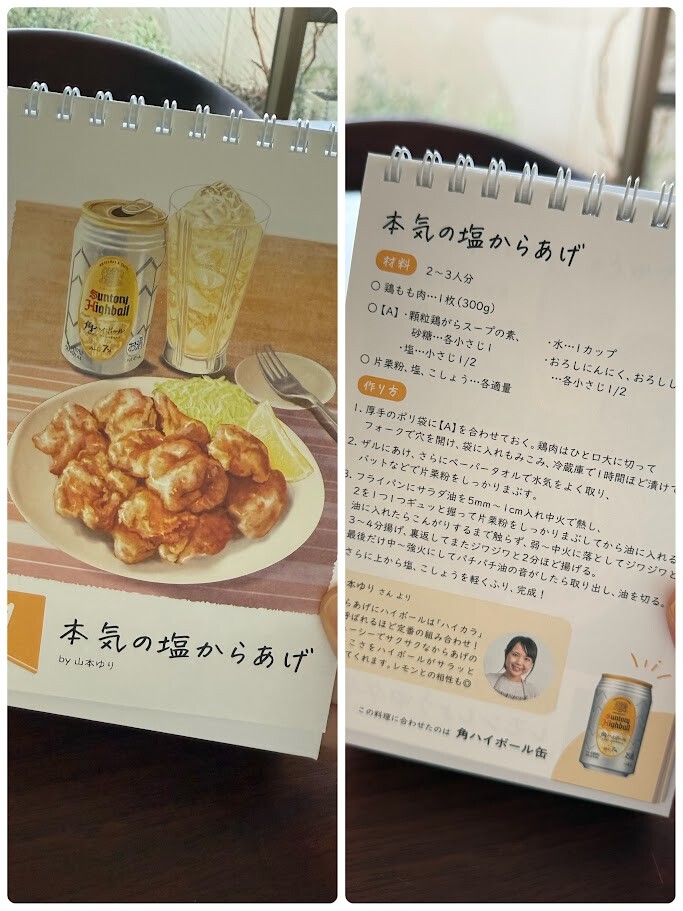 Suntory
Highball
角ハイボール
7%
本気の塩からあげ
by 山本ゆり
本気の塩からあげ
材料
2〜3人分
○ 鶏もも肉…1枚(300g)
○【A】・顆粒鶏がらスープの素、
砂糖…各小さじ1
・塩…小さじ1/2
・水…1カップ
・おろしにんにく、おろし
…各小さじ1/2
○ 片栗粉、塩、こしょう…各適量
作り方
1. 厚手のポリ袋に【A】を合わせておく。鶏肉はひと口大に切って
フォークで穴を開け、袋に入れもみこみ、冷蔵庫で1時間ほど漬けて
2. ザルにあけ、さらにペーパータオルで水気をよく取り、
バットなどで片栗粉をしっかりまぶす。
3. フライパンにサラダ油を5mm〜1cm入れ中火で熱し、
2を1つ1つギュッと握って片栗粉をしっかりまぶしてから油に入れる
油に入れたらこんがりするまで触らず、弱〜中火に落としてジワジワと
3〜4分揚げ、裏返してまたジワジワと2分ほど揚げる。
最後だけ中〜強火にしてパチパチ油の音がしたら取り出し、油を切る。
さらに上から塩、こしょうを軽くふり、完成!
本ゆり さんより
らあげにハイボールは「ハイカラ」
呼ばれるほど定番の組み合わせ!
ーシーでサクサクなからあげの
こさをハイボールがサラッと
てくれます。レモンとの相性も◎
この料理に合わせたのは 角ハイボール缶
Suntory
Highball
角ハイボール